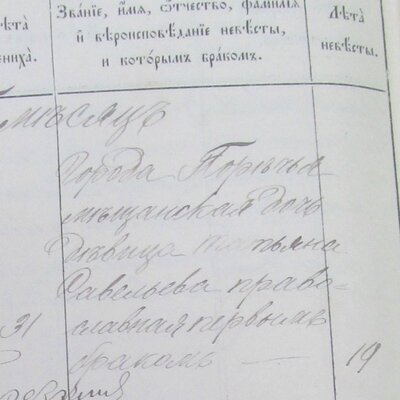 ѣта̀
ениха̀.
Зва́нїе, и́мѧ, ѻ́тчество, фами́лїѧ
и҆ вѣроисповѣ́данїе невѣ́сты,
и҆ кото́рымъ бра́комъ.
Лѣта̀
невѣ́сты.
мѣсяцъ
Города Порѣчья
мѣщанская дочь
дѣвица Татьяна
Савельева право-
31 славная первымъ
бракомъ — 19